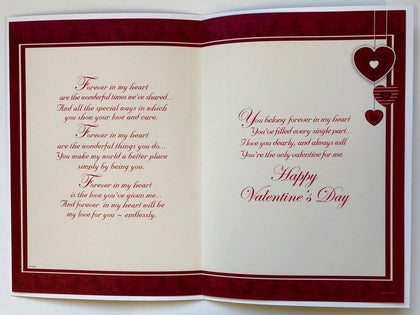 Forever in my heart
are the wonderful times we've shared...
And all the special ways in which
you show your love and care.
Forever in my heart
are the wonderful things you do...
You make my world a better place
simply by being you.
Forever in my heart
is the love you've given me...
And forever in my heart will be
my love for you ~ endlessly.
You belong forever in my heart
You've filled every single part...
I love you dearly, and always will
You're the only valentine for me.
Happy
Valentine's Day